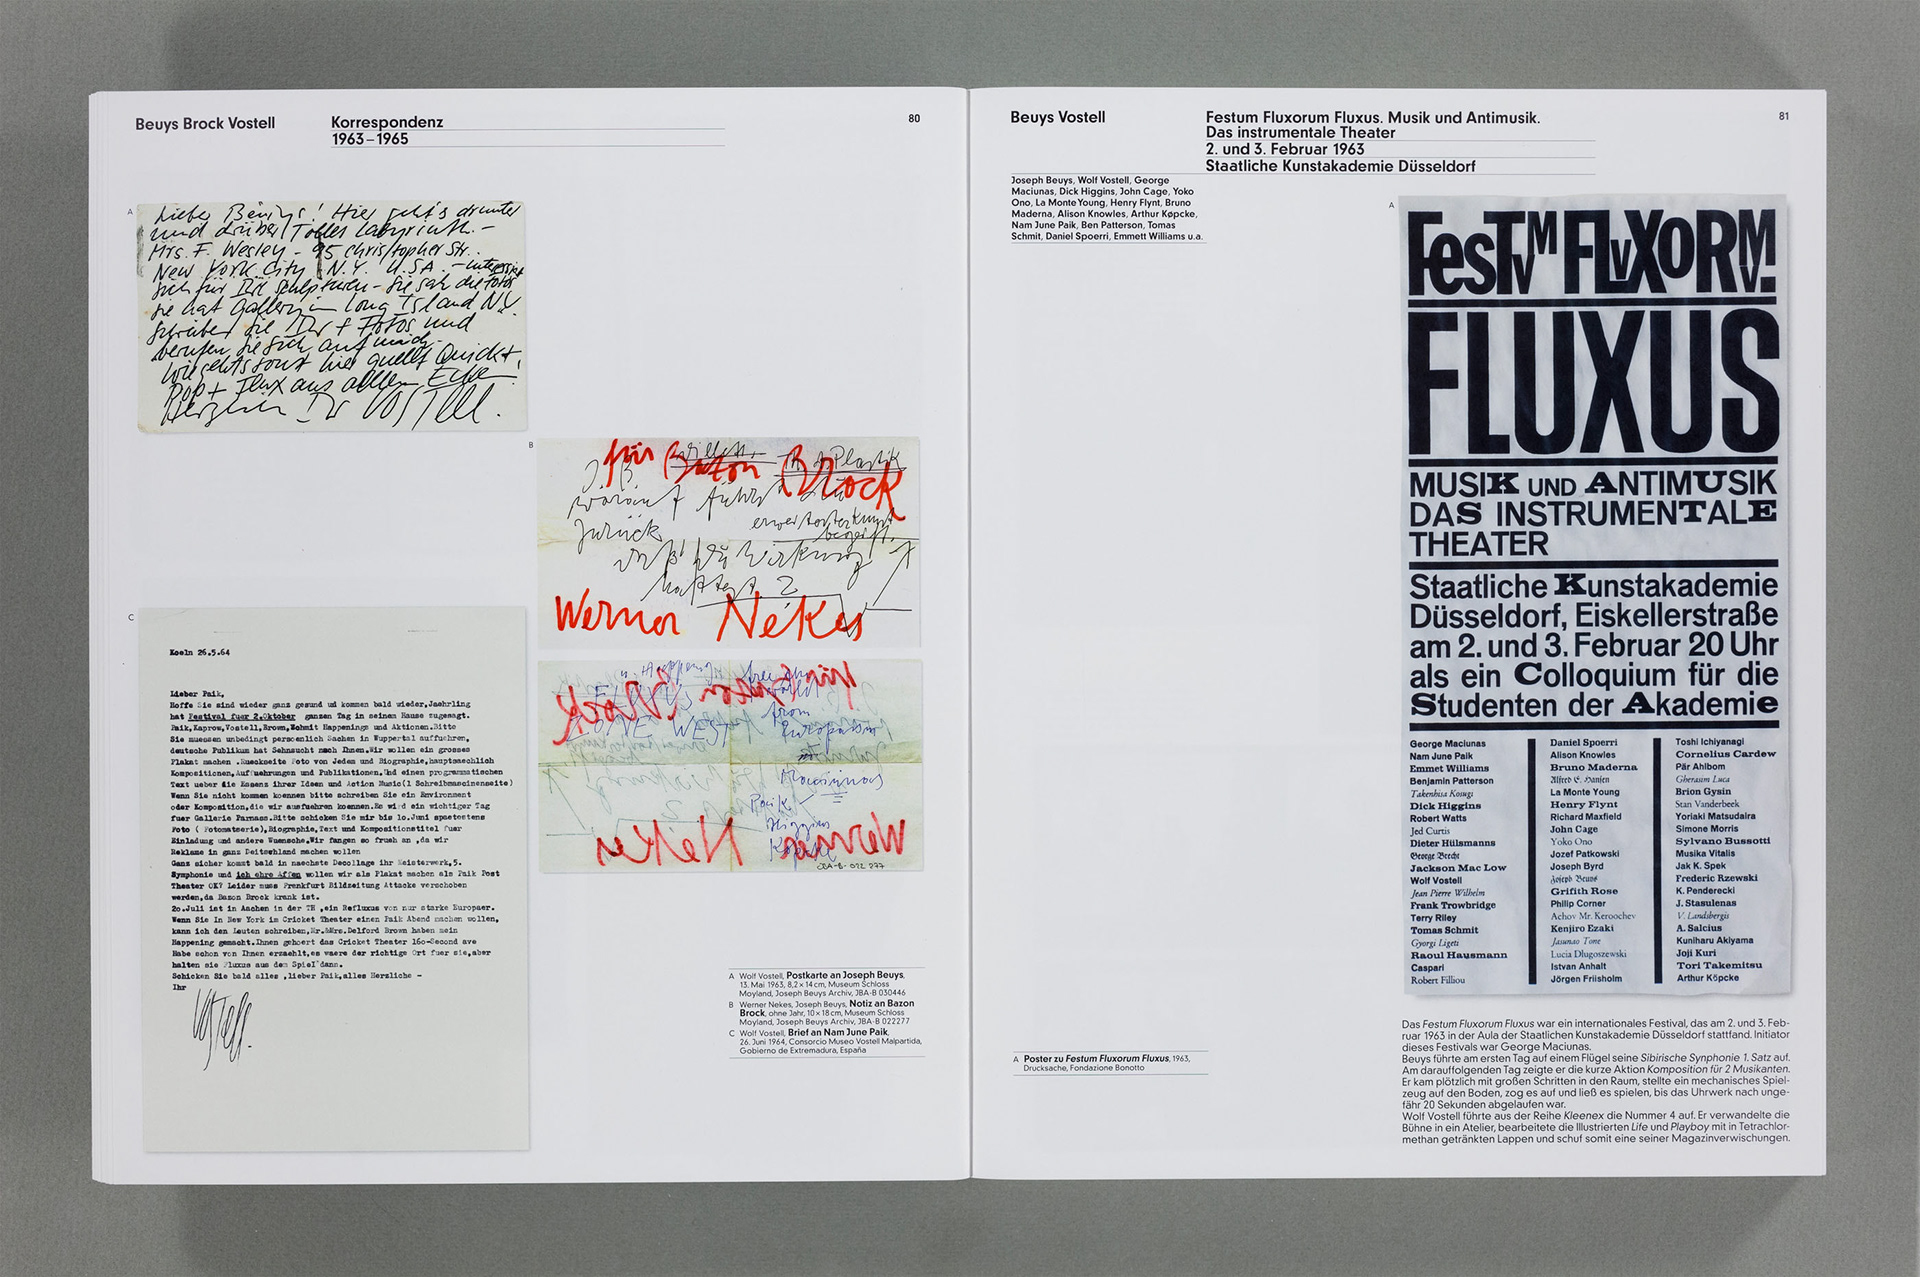 Beuys Brock Vostell
Korrespondenz
1963–1965
80
A
Lieber Beuys! Hier geht's drunter
und drüber! Tolles Labyrinth. –
Mrs. F. Wesley – 95 Christopher Str.
New York City N.Y. U.S.A. – interessiert
sich für Ihre Skulpturen – sie sah die Fotos
sie hat Gallery in Long Island N.Y.
schreiben sie Ihr + Fotos und
berufen Sie sich auf mich.
wie gehts sonst hier quellt Quickt
Pop + Flux aus allen Ecken!
Herzlich Ihr Vostell.
B
für Bazon Brock
Plastik
J. B.
worauf führst Du
zurück
erweiterter Kunst
begriff.
daß Du Wirkung
hattest. ?
Werner Nekes
FLUXUS
ZONE WEST
from
Maciunas
Paik
Higgins
Köpcke
JBA-B-022 277
C
Koeln 26.5.64
Lieber Paik,
Hoffe Sie sind wieder ganz gesund ud kommen bald wieder,Jaehrling
hat Festival fuer 2.Oktober ganzen Tag in seinem Hause zugesagt.
Paik,Kaprow,Vostell,Brown,Schmit Happenings und Aktionen.Bitte
Sie muessen unbedingt persoenlich Sachen in Wuppertal auffuehren,
deutsche Publikum hat Sehnsucht nach Ihnen.Wir wollen ein grosses
Plakat machen .Rueckseite Foto von Jedem und Biographie,hauptsaechlich
Kompositionen,Auffuehrungen und Publikationen.Und einen programmatischen
Text ueber die Essenz ihrer Ideen und Action Music(1 Schreibmascinenseite)
Wenn Sie nicht kommen koennen bitte schreiben Sie ein Environment
oder Komposition,die wir ausfuehren koennen.Es wird ein wichtiger Tag
fuer Gallerie Parnass.Bitte schicken Sie mir bis 1o.Juni spaetestens
Foto ( Fotomatserie),Biographie,Text und Kompositionstitel fuer
Einladung und andere Wuensche.Wir fangen so frueh an ,da wir
Reklame in ganz Deitschland machen wollen
Ganz sicher kommt bald in naechste Decollage ihr Meisterwerk,5.
Symphonie und ich ehre Affen wollen wir als Plakat machen als Paik Post
Theater OK? Leider muss Frankfurt Bildzeitung Attacke verschoben
werden,da Bazon Brock krank ist.
2o.Juli ist in Aachen in der TH ,ein Refluxus von nur starke Europaer.
Wenn Sie In New York im Cricket Theater einen Paik Abend machen wollen,
kann ich den Leuten schreiben,Mr.&Mrs.Delford Brown haben mein
Happening gemacht.Ihnen gehoert das Cricket Theater 16o-Second ave
Habe schon von Ihnen erzaehlt,es waere der richtige Ort fuer sie,aber
halten sie Fluxus aus dem Spiel dann.
Schicken Sie bald alles ,lieber Paik,alles Herzliche –
Ihr
Vostell.
A Wolf Vostell, Postkarte an Joseph Beuys,
13. Mai 1963, 8,2 × 14 cm, Museum Schloss
Moyland, Joseph Beuys Archiv, JBA-B 030446
B Werner Nekes, Joseph Beuys, Notiz an Bazon
Brock, ohne Jahr, 10 × 18 cm, Museum Schloss
Moyland, Joseph Beuys Archiv, JBA-B 022277
C Wolf Vostell, Brief an Nam June Paik,
26. Juni 1964, Consorcio Museo Vostell Malpartida,
Gobierno de Extremadura, España
Beuys Vostell
Festum Fluxorum Fluxus. Musik und Antimusik.
Das instrumentale Theater
2. und 3. Februar 1963
Staatliche Kunstakademie Düsseldorf
81
Joseph Beuys, Wolf Vostell, George
Maciunas, Dick Higgins, John Cage, Yoko
Ono, La Monte Young, Henry Flynt, Bruno
Maderna, Alison Knowles, Arthur Køpcke,
Nam June Paik, Ben Patterson, Tomas
Schmit, Daniel Spoerri, Emmett Williams u.a.
A
FesTvM FLvXORVM!
FLUXUS
MUSIK UND ANTIMUSIK
DAS INSTRUMENTALE
THEATER
Staatliche Kunstakademie
Düsseldorf, Eiskellerstraße
am 2. und 3. Februar 20 Uhr
als ein Colloquium für die
Studenten der Akademie
George Maciunas
Nam June Paik
Emmet Williams
Benjamin Patterson
Takenhisa Kosugi
Dick Higgins
Robert Watts
Jed Curtis
Dieter Hülsmanns
George Brecht
Jackson Mac Low
Wolf Vostell
Jean Pierre Wilhelm
Frank Trowbridge
Terry Riley
Tomas Schmit
Gyorgi Ligeti
Raoul Hausmann
Caspari
Robert Filliou
Daniel Spoerri
Alison Knowles
Bruno Maderna
Alfred E. Hansen
La Monte Young
Henry Flynt
Richard Maxfield
John Cage
Yoko Ono
Jozef Patkowski
Joseph Byrd
Joseph Beuys
Griffith Rose
Philip Corner
Achov Mr. Keroochev
Kenjiro Ezaki
Jasunao Tone
Lucia Dlugoszewski
Istvan Anhalt
Jörgen Friisholm
Toshi Ichiyanagi
Cornelius Cardew
Pär Ahlbom
Gherasim Luca
Brion Gysin
Stan Vanderbeek
Yoriaki Matsudaira
Simone Morris
Sylvano Bussotti
Musika Vitalis
Jak K. Spek
Frederic Rzewski
K. Penderecki
J. Stasulenas
V. Landsbergis
A. Salcius
Kuniharu Akiyama
Joji Kuri
Tori Takemitsu
Arthur Köpcke
A Poster zu Festum Fluxorum Fluxus, 1963,
Drucksache, Fondazione Bonotto
Das Festum Fluxorum Fluxus war ein internationales Festival, das am 2. und 3. Feb-
ruar 1963 in der Aula der Staatlichen Kunstakademie Düsseldorf stattfand. Initiator
dieses Festivals war George Maciunas.
Beuys führte am ersten Tag auf einem Flügel seine Sibirische Synphonie 1. Satz auf.
Am darauffolgenden Tag zeigte er die kurze Aktion Komposition für 2 Musikanten.
Er kam plötzlich mit großen Schritten in den Raum, stellte ein mechanisches Spiel-
zeug auf den Boden, zog es auf und ließ es spielen, bis das Uhrwerk nach unge-
fähr 20 Sekunden abgelaufen war.
Wolf Vostell führte aus der Reihe Kleenex die Nummer 4 auf. Er verwandelte die
Bühne in ein Atelier, bearbeitete die Illustrierten Life und Playboy mit in Tetrachlor-
methan getränkten Lappen und schuf somit eine seiner Magazinverwischungen.